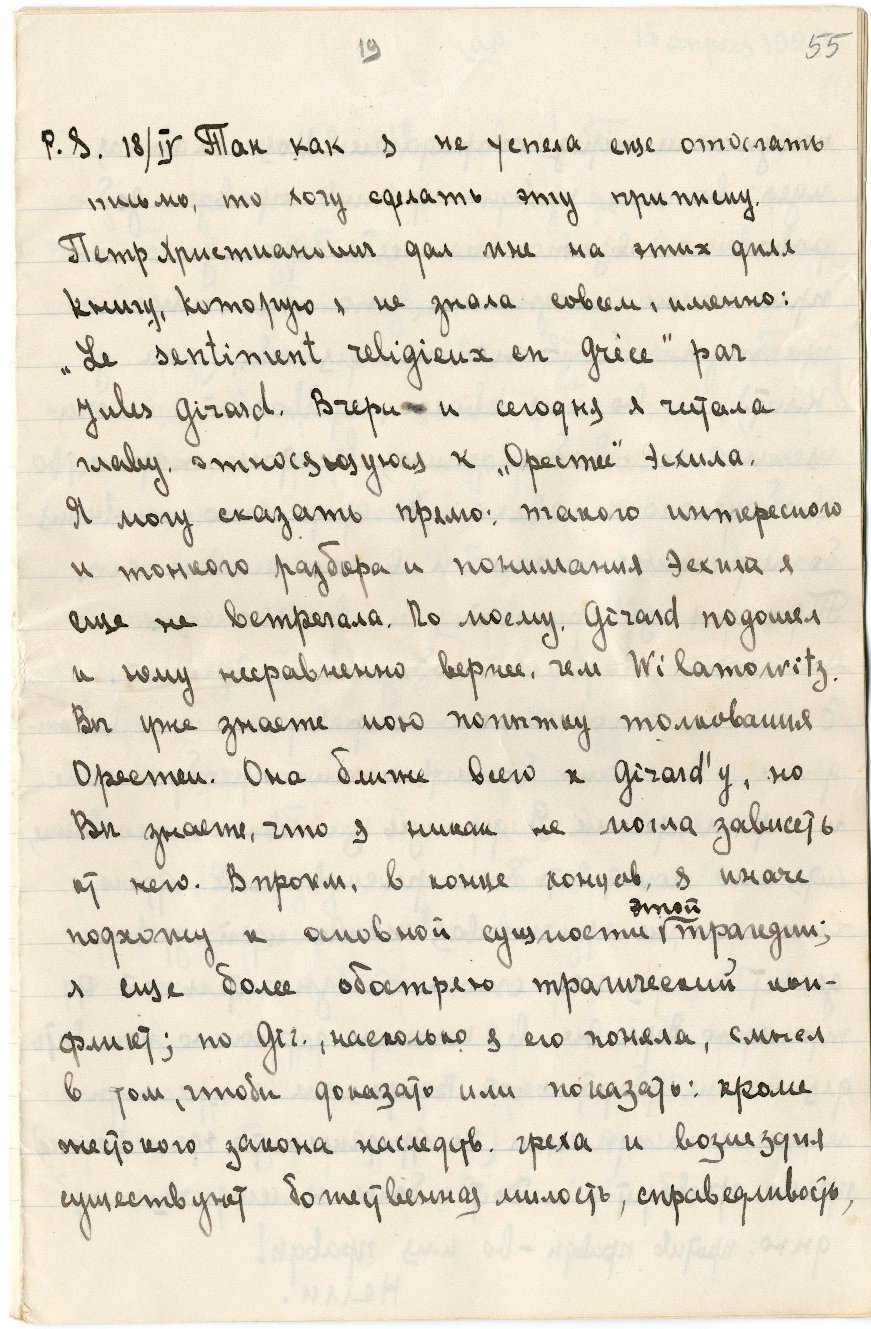 19
55
P. S. 18/IV Так как я не успела еще отослать
письмо, то хочу сделать эту приписку.
Петр Христианович дал мне на этих днях
книгу, которую я не знала совсем, именно:
„Le sentiment religieux en Grèce" par
Jules Girard. Вчера и сегодня я читала
главу, относящуюся к „Орестее" Эсхила.
Я могу сказать прямо: такого интересного
и тонкого разбора и понимания Эсхила я
еще не встречала. По моему, Girard подошел
к нему несравненно вернее, чем Wilamowitz.
Вы уже знаете мою попытку толкования
Орестеи. Она ближе всего к Girard'у, но
Вы знаете, что я никак не могла зависеть
от него. Впрочем, в конце концов, я иначе
подхожу к основной сущности этой трагедии;
я еще более обостряю трагический кон-
фликт; по Gir., насколько я его поняла, смысл
в том, чтобы доказать или показать: кроме
жестокого закона наследств. греха и возмездия
существует божественная милость, справедливость,